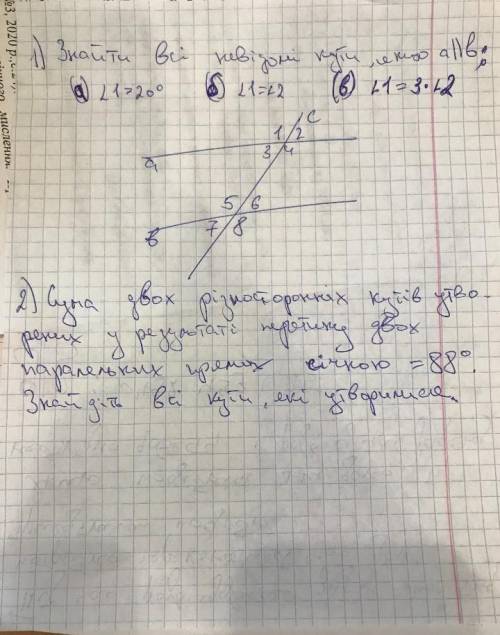 №3, 2020 р.
1) Знайти всі невідомі кути, якщо a||b:
а) ∠1=20° б) ∠1=∠2 в) ∠1=3·∠2
c
1 2
a 3 4
5 6
в 7 8
2) Сума двох різносторонніх кутів утво-
рених у результаті перетину двох
паралельних прямих січкою =88°.
Знайдіть всі кути, які утворилися.